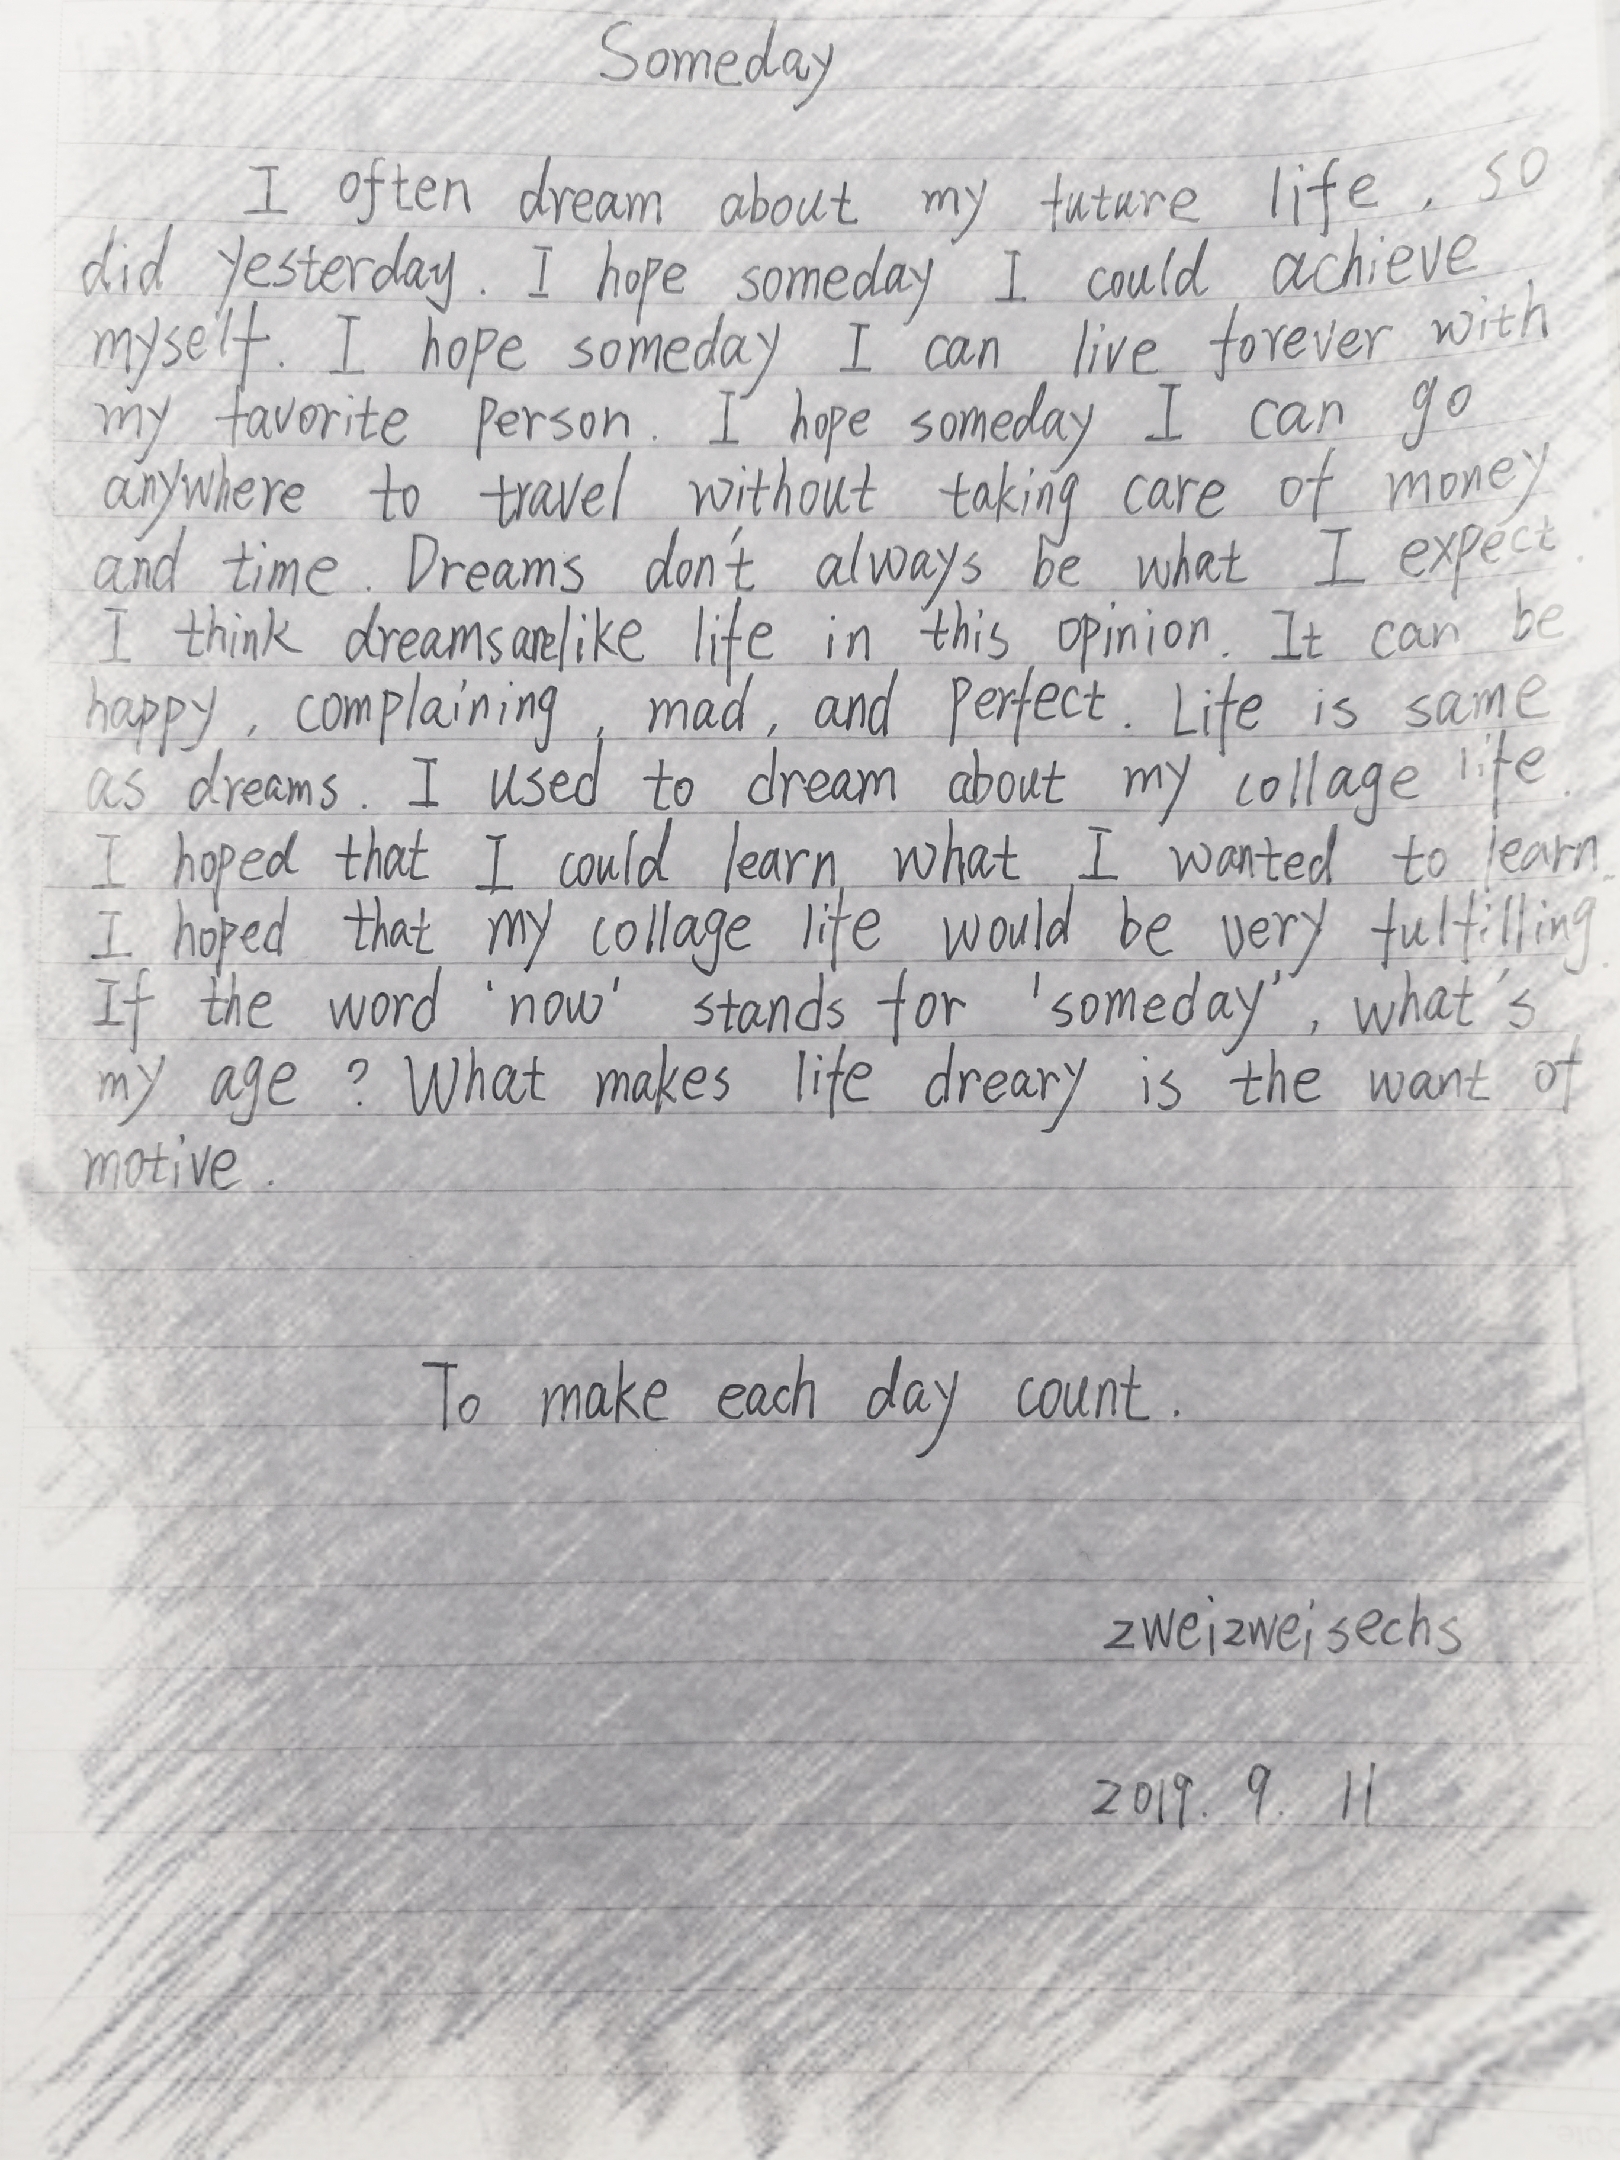 Someday
I often dream about my future life, so
did yesterday. I hope someday I could achieve
myself. I hope someday I can live forever with
my favorite person. I hope someday I can go
anywhere to travel without taking care of money
and time. Dreams don't always be what I expect.
I think dreams are like life in this opinion. It can be
happy, complaining, mad, and perfect. Life is same
as dreams. I used to dream about my collage life.
I hoped that I could learn what I wanted to learn.
I hoped that my collage life would be very fulfilling.
If the word 'now' stands for 'someday', what's
my age? What makes life dreary is the want of
motive.
To make each day count.
zweizweisechs
2019. 9. 11